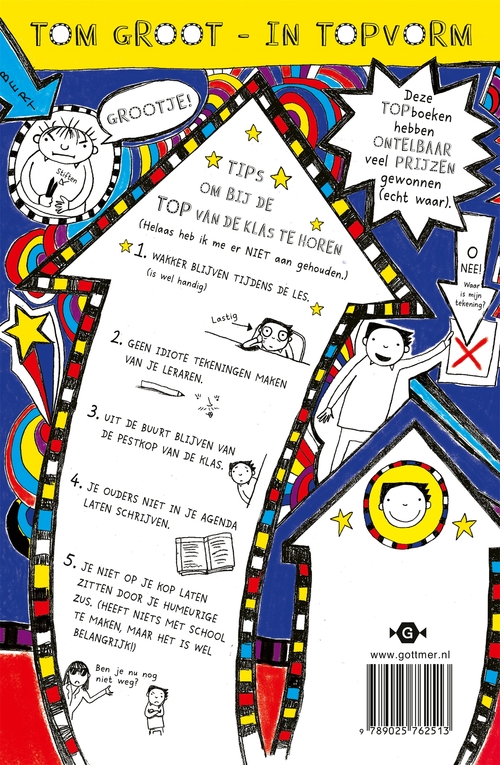 TOM GROOT - IN TOPVORM
BERT
GROOTJE!
Stiften
Deze
TOPboeken
hebben
ONTELBAAR
veel PRIJZEN
gewonnen
(echt waar).
TIPS
OM BIJ DE
TOP VAN DE KLAS TE HOREN
(Helaas heb ik me er NIET aan gehouden.)
1. WAKKER BLIJVEN TIJDENS DE LES.
(is wel handig)
Lastig
2. GEEN IDIOTE TEKENINGEN MAKEN
VAN JE LERAREN.
3. UIT DE BUURT BLIJVEN VAN
DE PESTKOP VAN DE KLAS.
4. JE OUDERS NIET IN JE AGENDA
LATEN SCHRIJVEN.
5. JE NIET OP JE KOP LATEN
ZITTEN DOOR JE HUMEURIGE
ZUS. (HEEFT NIETS MET SCHOOL
TE MAKEN, MAAR HET IS WEL
BELANGRIJK!)
Ben je nu nog
niet weg?
O
NEE!
Waar
is mijn
tekening?
G
www.gottmer.nl
9 789025 762513